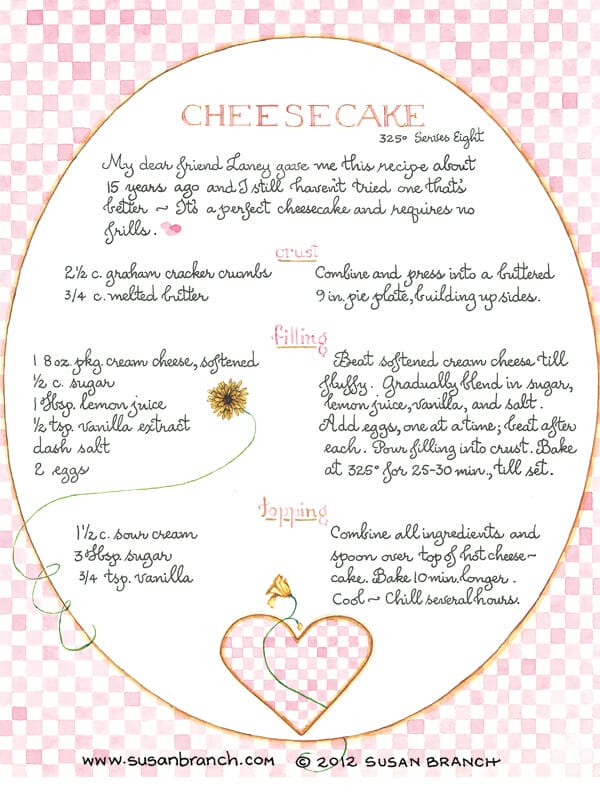 CHEESECAKE
325° Serves Eight
My dear friend Laney gave me this recipe about
15 years ago and I still haven't tried one that's
better ~ It's a perfect cheesecake and requires no
frills.
crust
2½ c. graham cracker crumbs
3/4 c. melted butter
Combine and press into a buttered
9 in. pie plate, building up sides.
filling
1 8 oz. pkg. cream cheese, softened
½ c. sugar
1 Tbsp. lemon juice
½ tsp. vanilla extract
dash salt
2 eggs
Beat softened cream cheese till
fluffy. Gradually blend in sugar,
lemon juice, vanilla, and salt.
Add eggs, one at a time; beat after
each. Pour filling into crust. Bake
at 325° for 25-30 min., till set.
topping
1½ c. sour cream
3 Tbsp. sugar
3/4 tsp. vanilla
Combine all ingredients and
spoon over top of hot cheese~
cake. Bake 10 min. longer.
Cool ~ Chill several hours.
www.susanbranch.com © 2012 SUSAN BRANCH